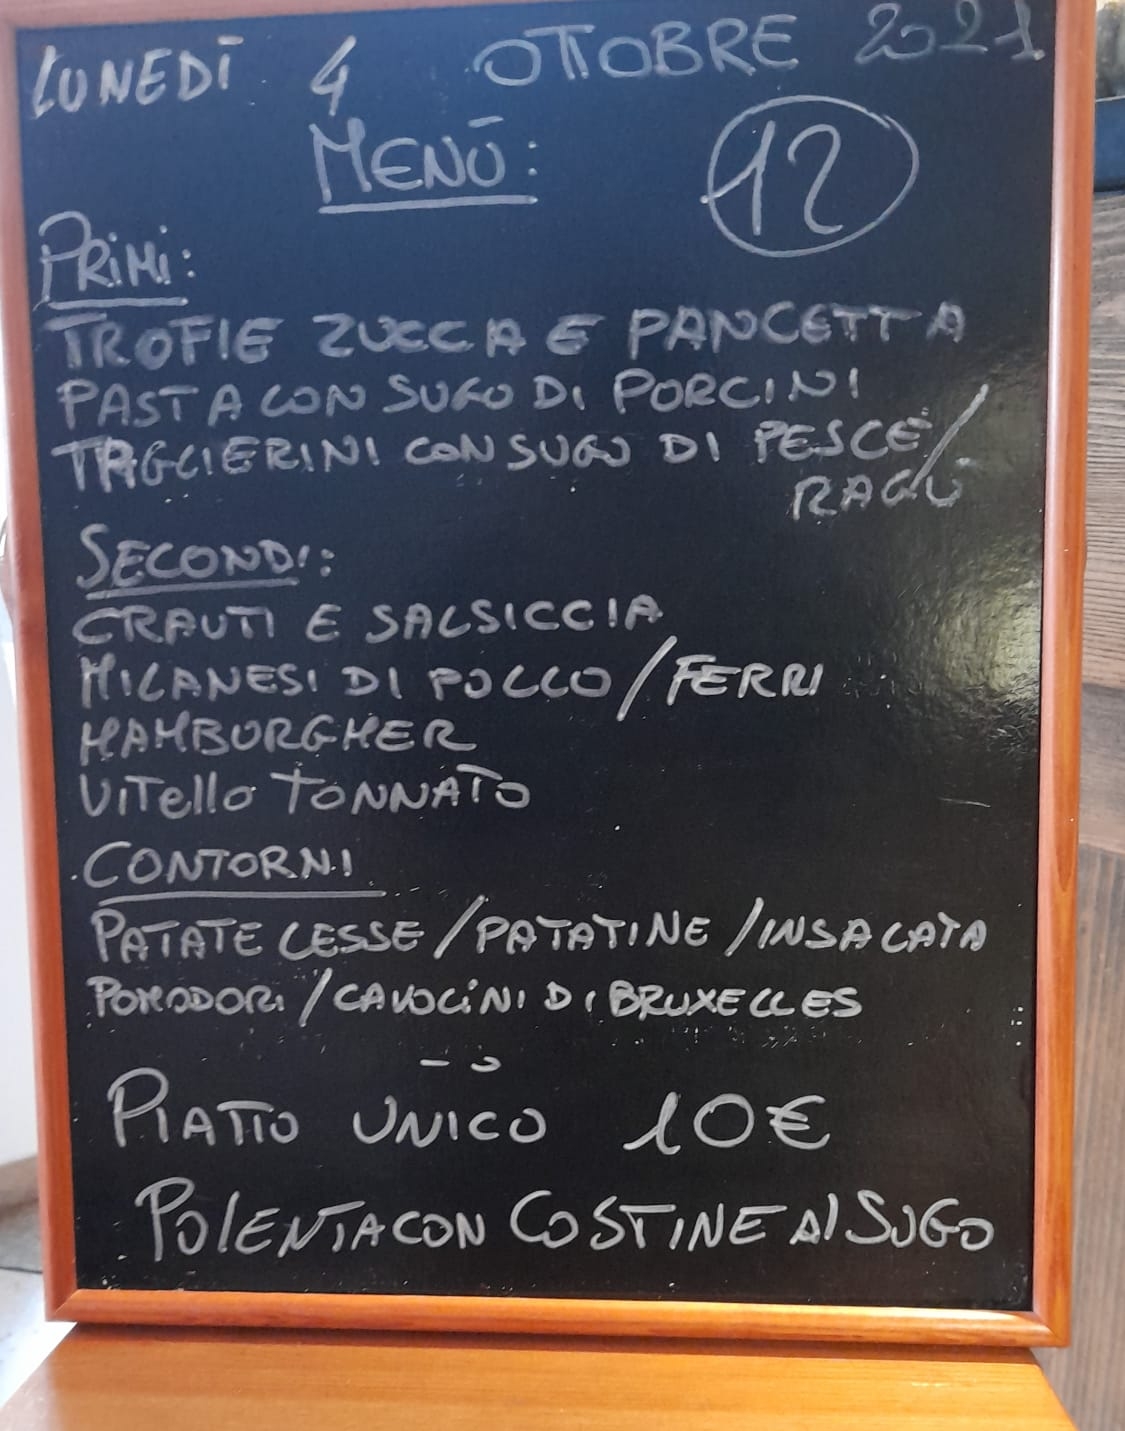 LUNEDÌ 4 OTTOBRE 2021
MENÙ: 12
PRIMI:
TROFIE ZUCCA E PANCETTA
PASTA CON SUGO DI PORCINI
TAGLIERINI CON SUGO DI PESCE/
RAGÙ
SECONDI:
CRAUTI E SALSICCIA
MILANESI DI POLLO/FERRI
HAMBURGHER
VITELLO TONNATO
CONTORNI
PATATE LESSE/PATATINE/INSALATA
POMODORI/CAVOLINI DI BRUXELLES
PIATTO UNICO 10€
POLENTA CON COSTINE AL SUGO